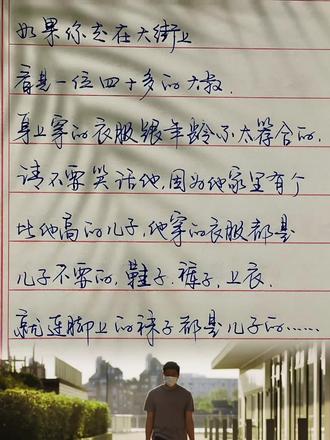 如果你走在大街上
看见一位四十多的大叔.
身上穿的衣服跟年龄不太符合的.
请不要笑话他,因为他家里有个
比他高的儿子,他穿的衣服都是
儿子不要的,鞋子.裤子.上衣.
就连脚上的袜子都是儿子的……